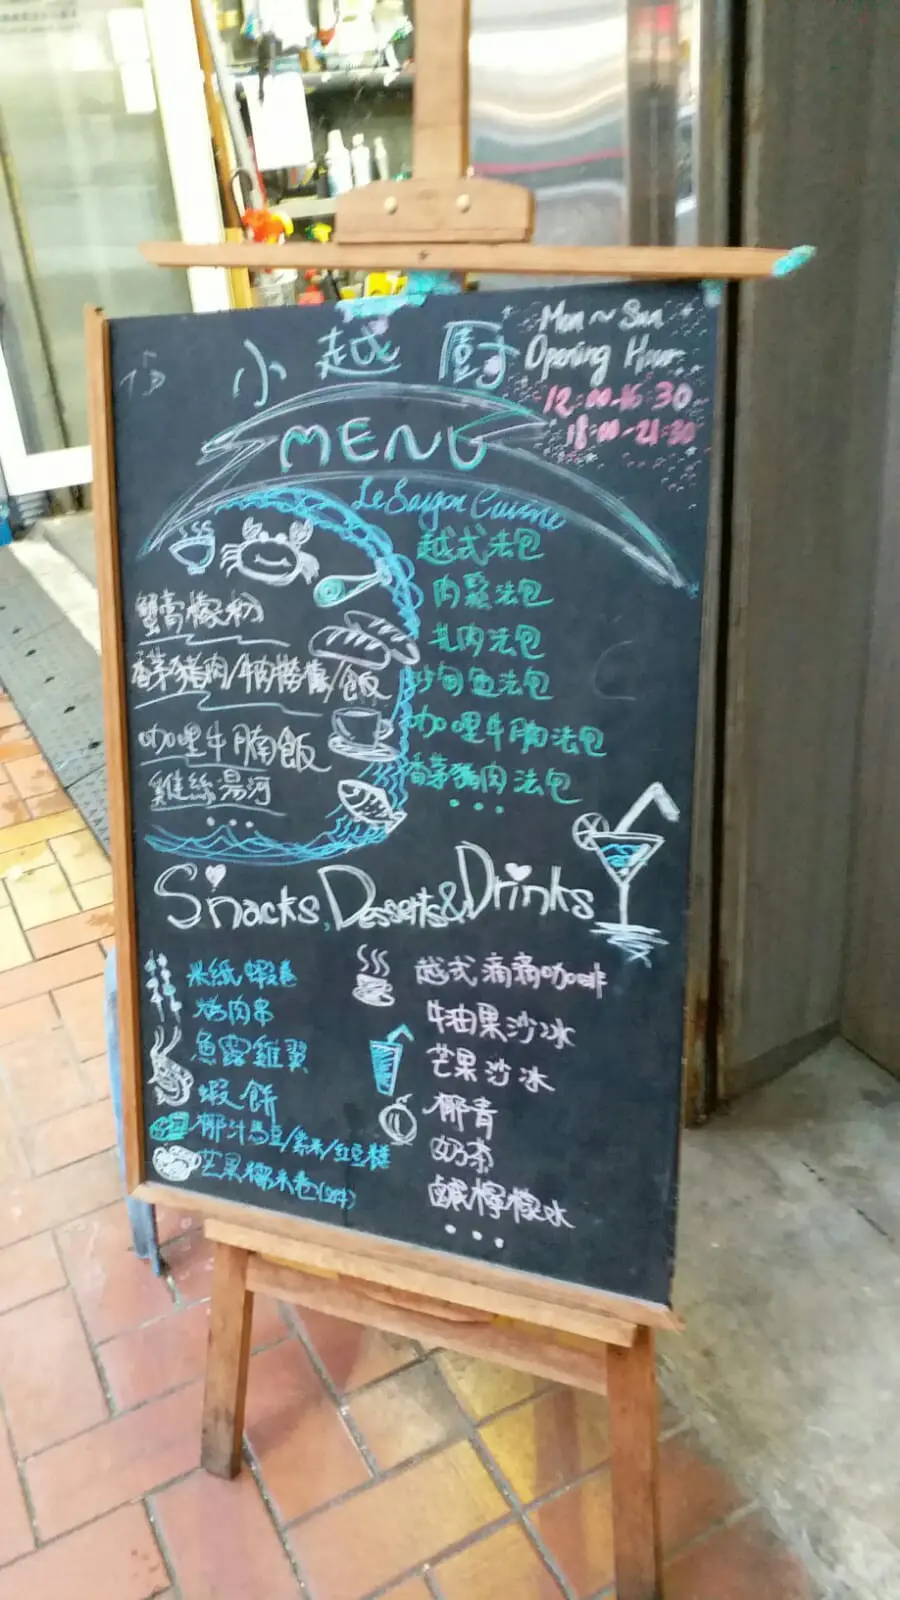 小越廚
Mon ~ Sun
Opening Hour
12:00-16:30
18:00-21:30
MENU
Le Saigon Cuisine
蟹膏檬粉
香茅豬肉/牛肉撈檬/飯
咖哩牛腩飯
雞絲湯河
...
越式法包
肉鬆法包
扎肉法包
沙甸魚法包
咖哩牛腩法包
香茅豬肉法包
...
Snacks, Desserts & Drinks
米紙蝦卷
烤肉串
魚露雞翼
蝦餅
椰汁馬豆/紫米/紅豆糕
芒果糯米卷
越式滴滴咖啡
牛油果沙冰
芒果沙冰
椰青
奶茶
鹹檸檬水
...